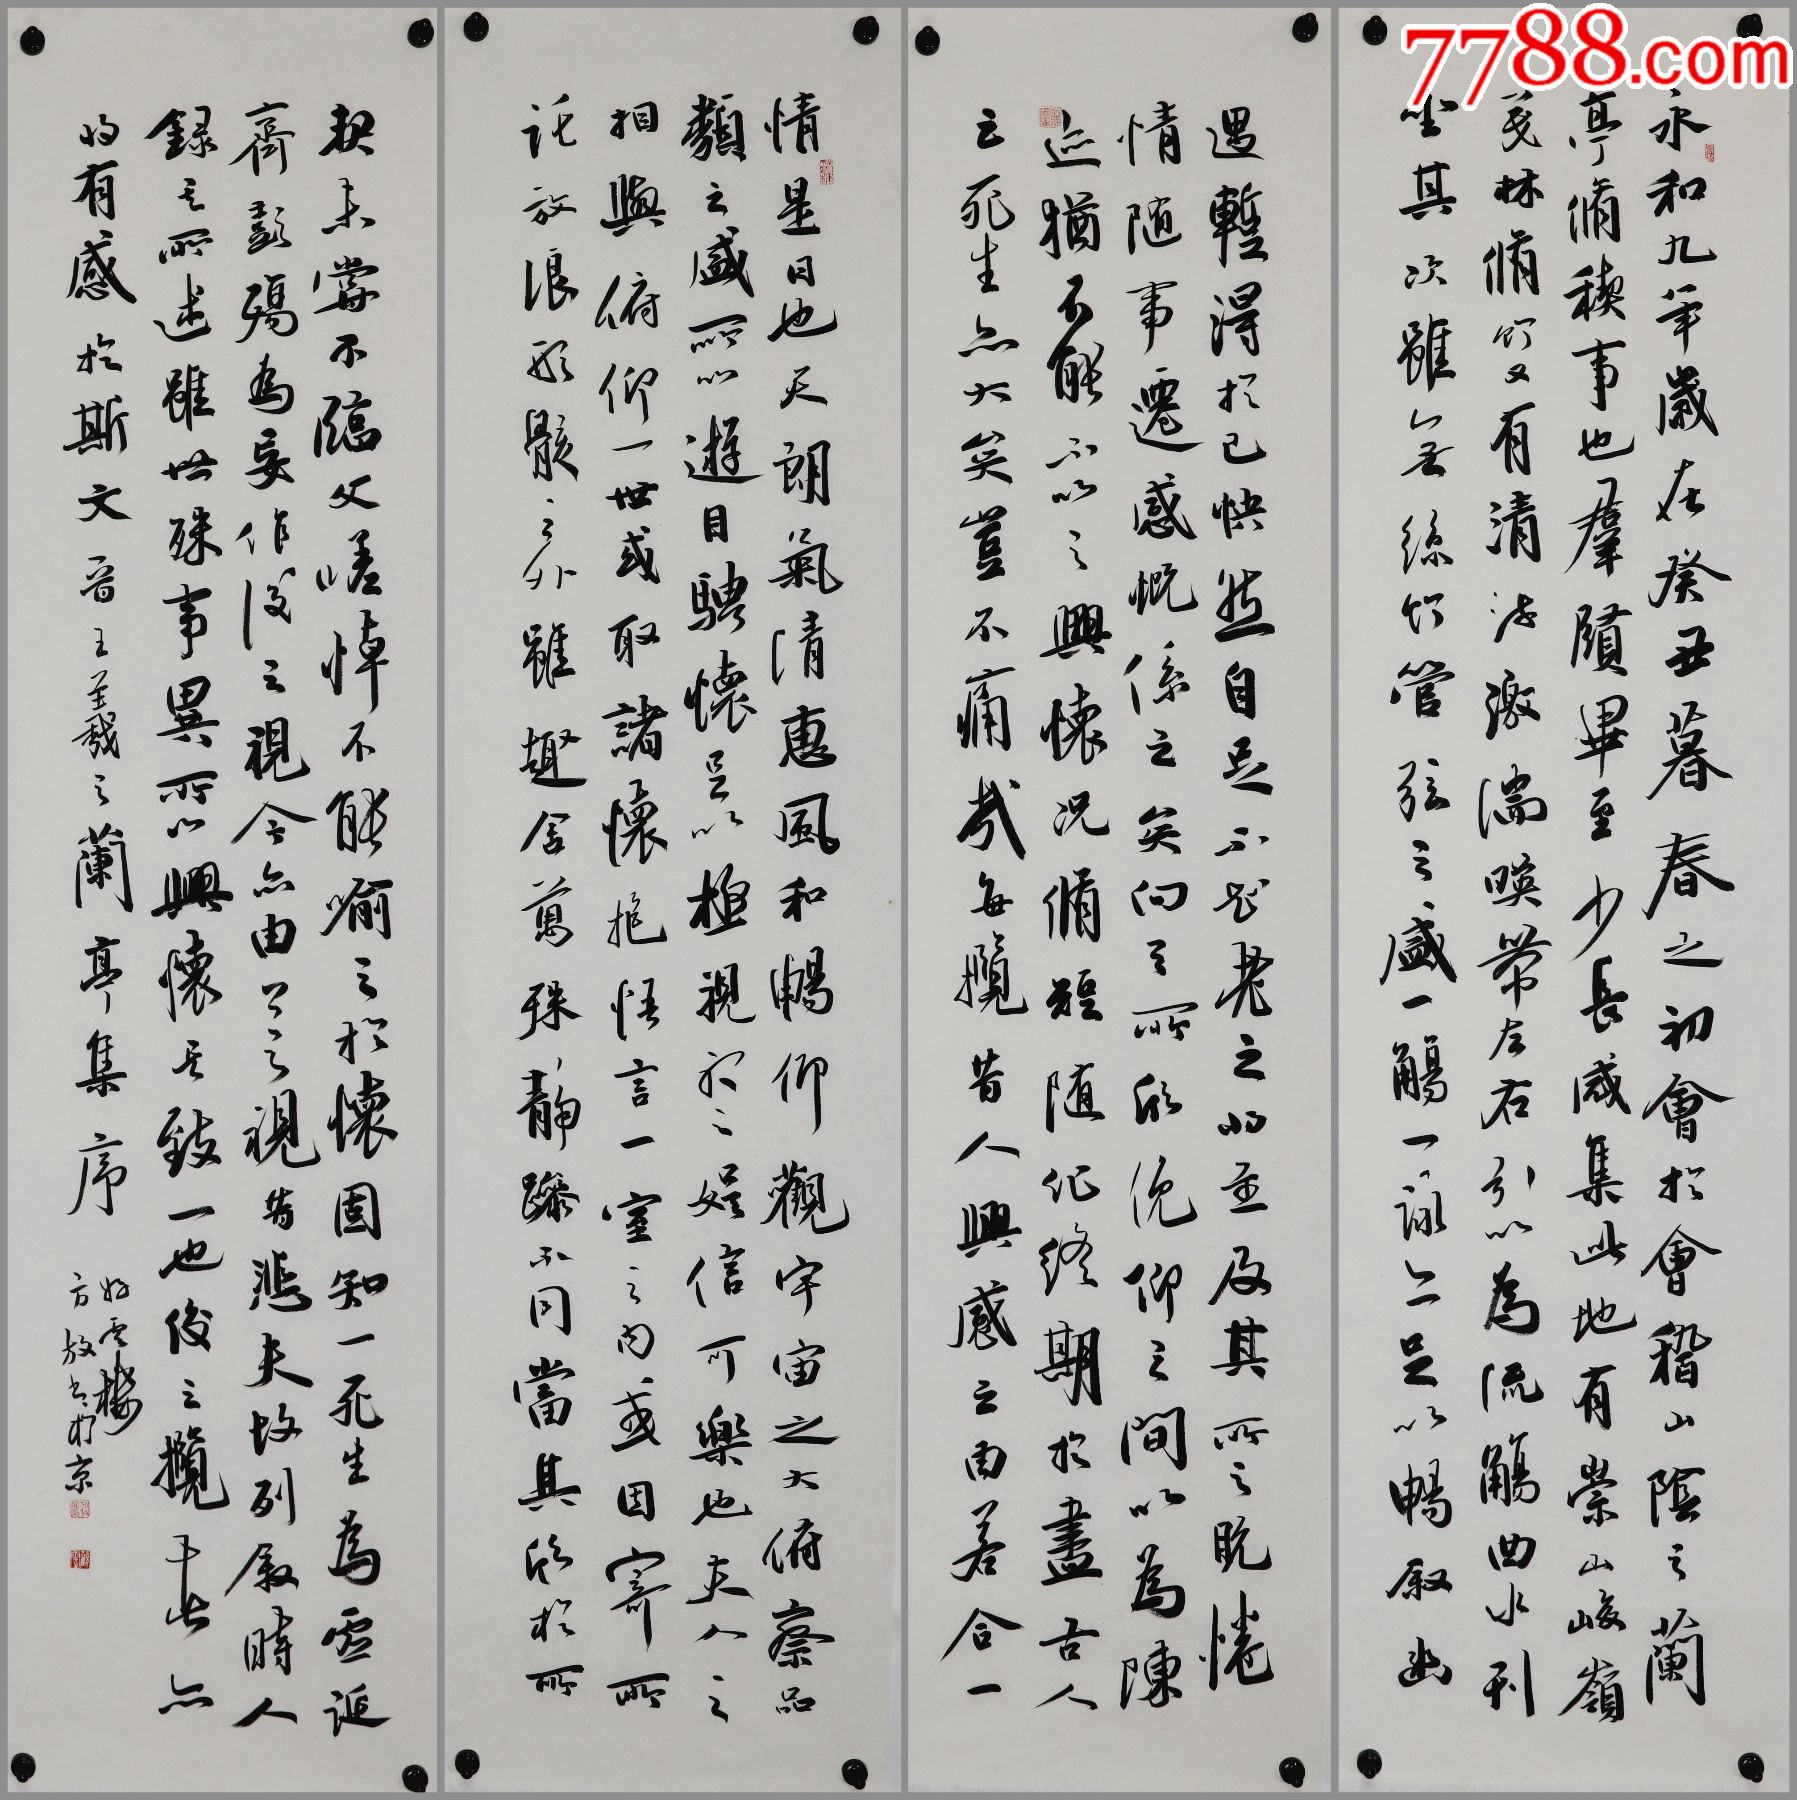 7788.com
永和九年歲在癸丑暮春之初會於會稽山陰之蘭
亭脩稧事也群賢畢至少長咸集此地有崇山峻嶺
茂林脩竹又有清流激湍暎帶左右引以為流觴曲水列
坐其次雖無絲竹管弦之盛一觴一詠亦足以暢敘幽
情是日也天朗氣清惠風和暢仰觀宇宙之大俯察品
類之盛所以遊目騁懷足以極視聽之娛信可樂也夫人之
相與俯仰一世或取諸懷抱悟言一室之內或因寄所
託放浪形骸之外雖趣舍萬殊靜躁不同當其欣於所
遇暫得於己快然自足不知老之將至及其所之既惓
情隨事遷感慨係之矣向之所欣俛仰之間以為陳
迹猶不能不以之興懷況脩短隨化終期於盡古人
云死生亦大矣豈不痛哉每攬昔人興感之由若合一
契未嘗不臨文嗟悼不能喻之於懷固知一死生為虛誕
齊彭殤為妄作後之視今亦由今之視昔悲夫故列敘時人
錄其所述雖世殊事異所以興懷其致一也後之攬者亦
將有感於斯文晉王羲之蘭亭集序
雲樓
方放書於京